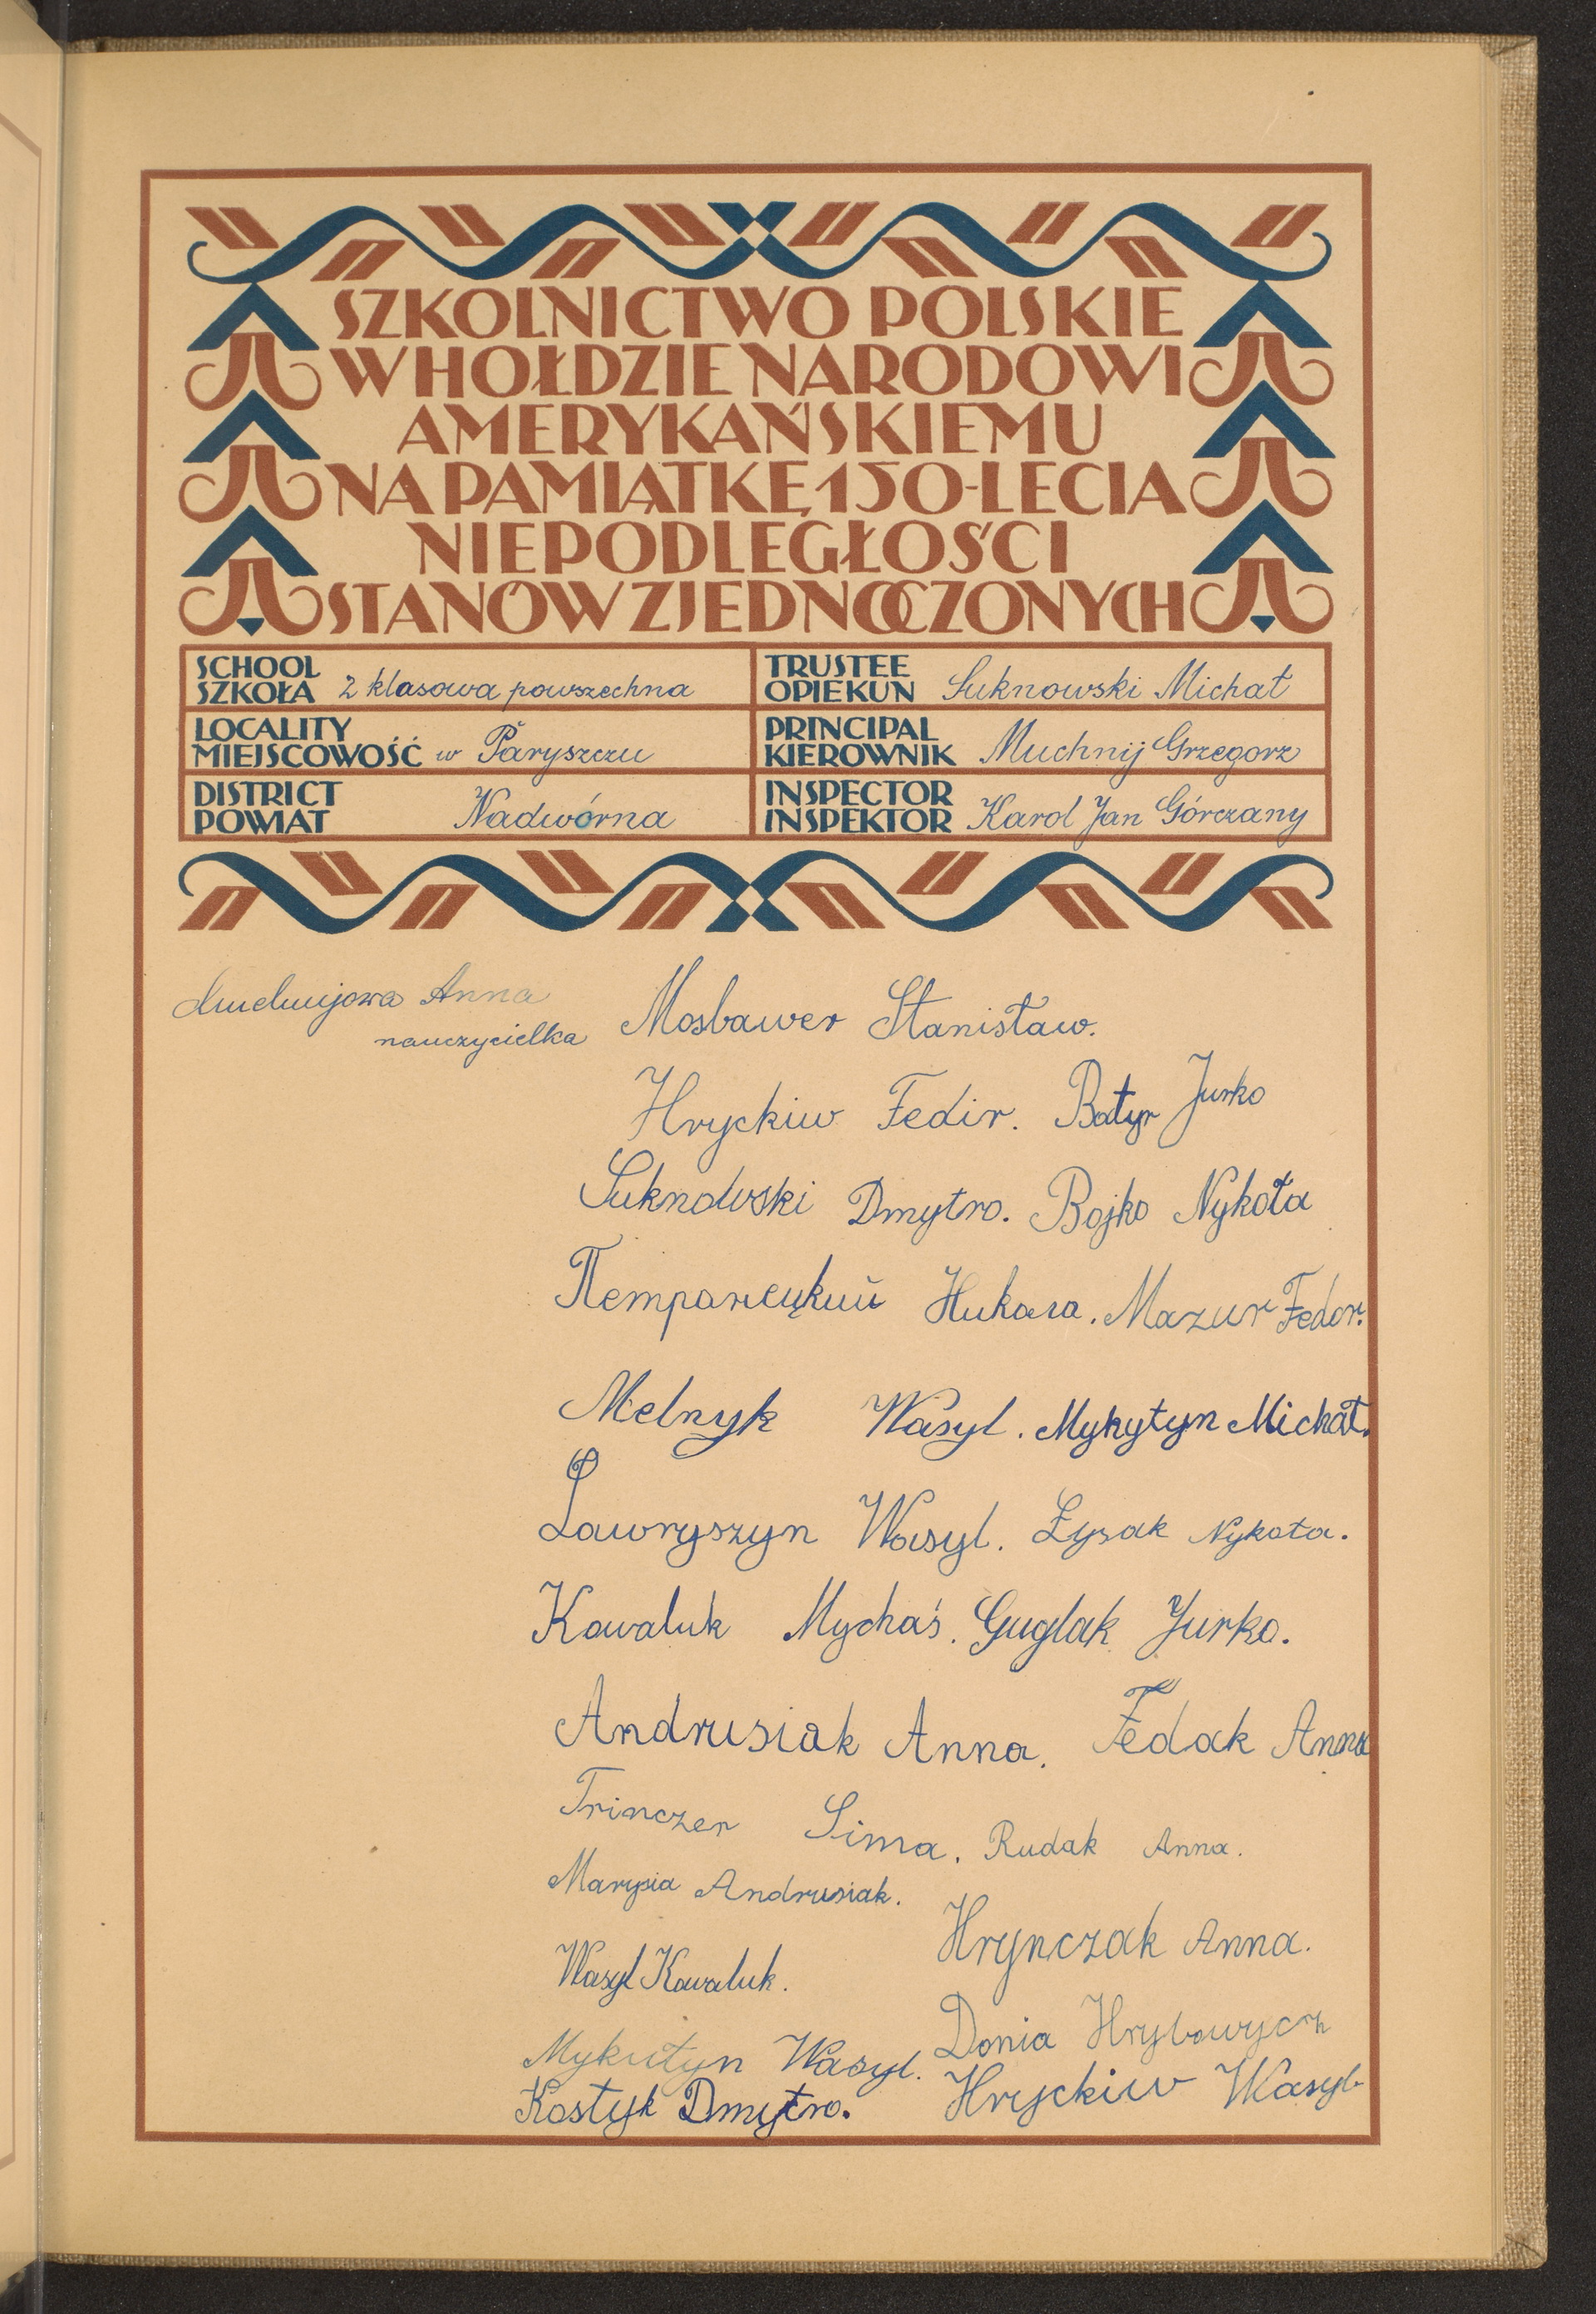 SZKOLNICTWO POLSKIE
W HOŁDZIE NARODOWI
AMERYKAŃSKIEMU
NA PAMIĄTKĘ 150-LECIA
NIEPODLEGŁOŚCI
STANÓW ZJEDNOCZONYCH
SCHOOL
SZKOŁA 2 klasowa powszechna
LOCALITY
MIEJSCOWOŚĆ w Paryszczu
DISTRICT
POWIAT Nadwórna
TRUSTEE
OPIEKUN Suknowski Michał
PRINCIPAL
KIEROWNIK Muchnij Grzegorz
INSPECTOR
INSPEKTOR Karol Jan Górczany
Anna
nauczycielka
Mosbawer Stanisław.
Hryckiw Fedir. Batyr Jurko
Suknowski Dmytro. Bojko Nykoła
Петранецький Никола. Mazur Fedor.
Melnyk Wasyl. Mykytyn Michał.
Ławryszyn Wasyl. Łysak Nykoła.
Kowaluk Mychaś. Guglak Jurko.
Andrusiak Anna. Fedak Anna
Trinczer Sima. Rudak Anna.
Marysia Andrusiak.
Hrynczak Anna.
Wasyl Kowaluk.
Donia Hrybowycz
Mykytyn Wasyl.
Hryckiw Wasyl
Kostyk Dmytro.